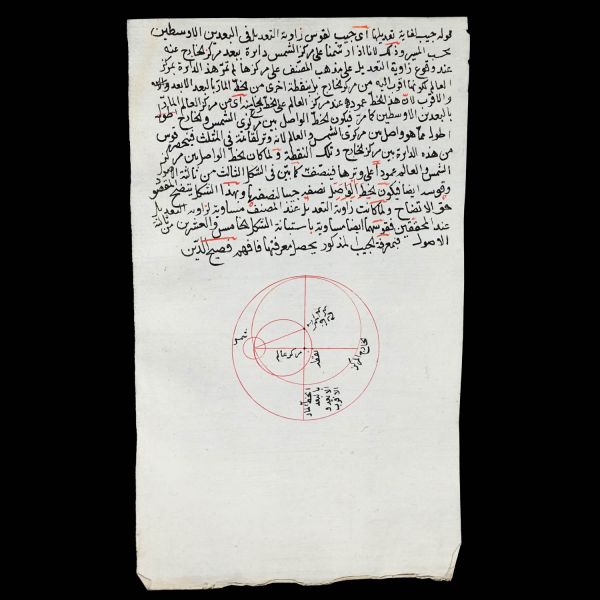 قوله جيب لغاية تعديلها اى جيب لقوس زاوية التعديل فى البعدين الاوسطين
بحسب المسير وذلك لانا اذا رسمنا على مركز الشمس دائرة ببعد مركز الخارج عنه
عند وقوع زاوية التعديل على مذهب المصنف على مركزها لم تمر هذه الدائرة بمركز
العالم لكونها اقرب اليه من مركز الخارج بل بنقطة اخرى من الخط المار بالبعد الابعد
والاقرب لان هذا الخط عمود عند مركز العالم على الخط من مركز العالم المار
بالبعدين الاوسطين كما مر فيكون الخط الواصل بين مركزى الشمس والخارج اطول
اطول مما هو واصل بين مركزى الشمس والعالم لانه وتر لقائمة فى المثلث فينحصر قوس
من هذه الدائرة بين مركز الخارج وتلك النقطة ولما كان الخط الواصل بين مركز
الشمس والعالم عمودا على وترها فينصف كما بين فى الشكل الثالث من ثالثة الاصول
وقوسه ايضا فيكون الخط الواصل نصفه جيبا لنصفها وبهذا الشكل يتضح المقصود
حق الاتضاح ولما كانت زاوية التعديل عند المصنف مساوية لزاوية التعديل
عند المحققين فقوسهما ايضا مساوية باستبانة الشكل الخامس والعشرين من ثالثة
الاصول فبمعرفة الجيب المذكور يحصل معرفتها فافهم فصيح الدين
مركز عالم
خارج المركز
نقطة
الخط المار
بالبعد
الابعد و
الاقرب